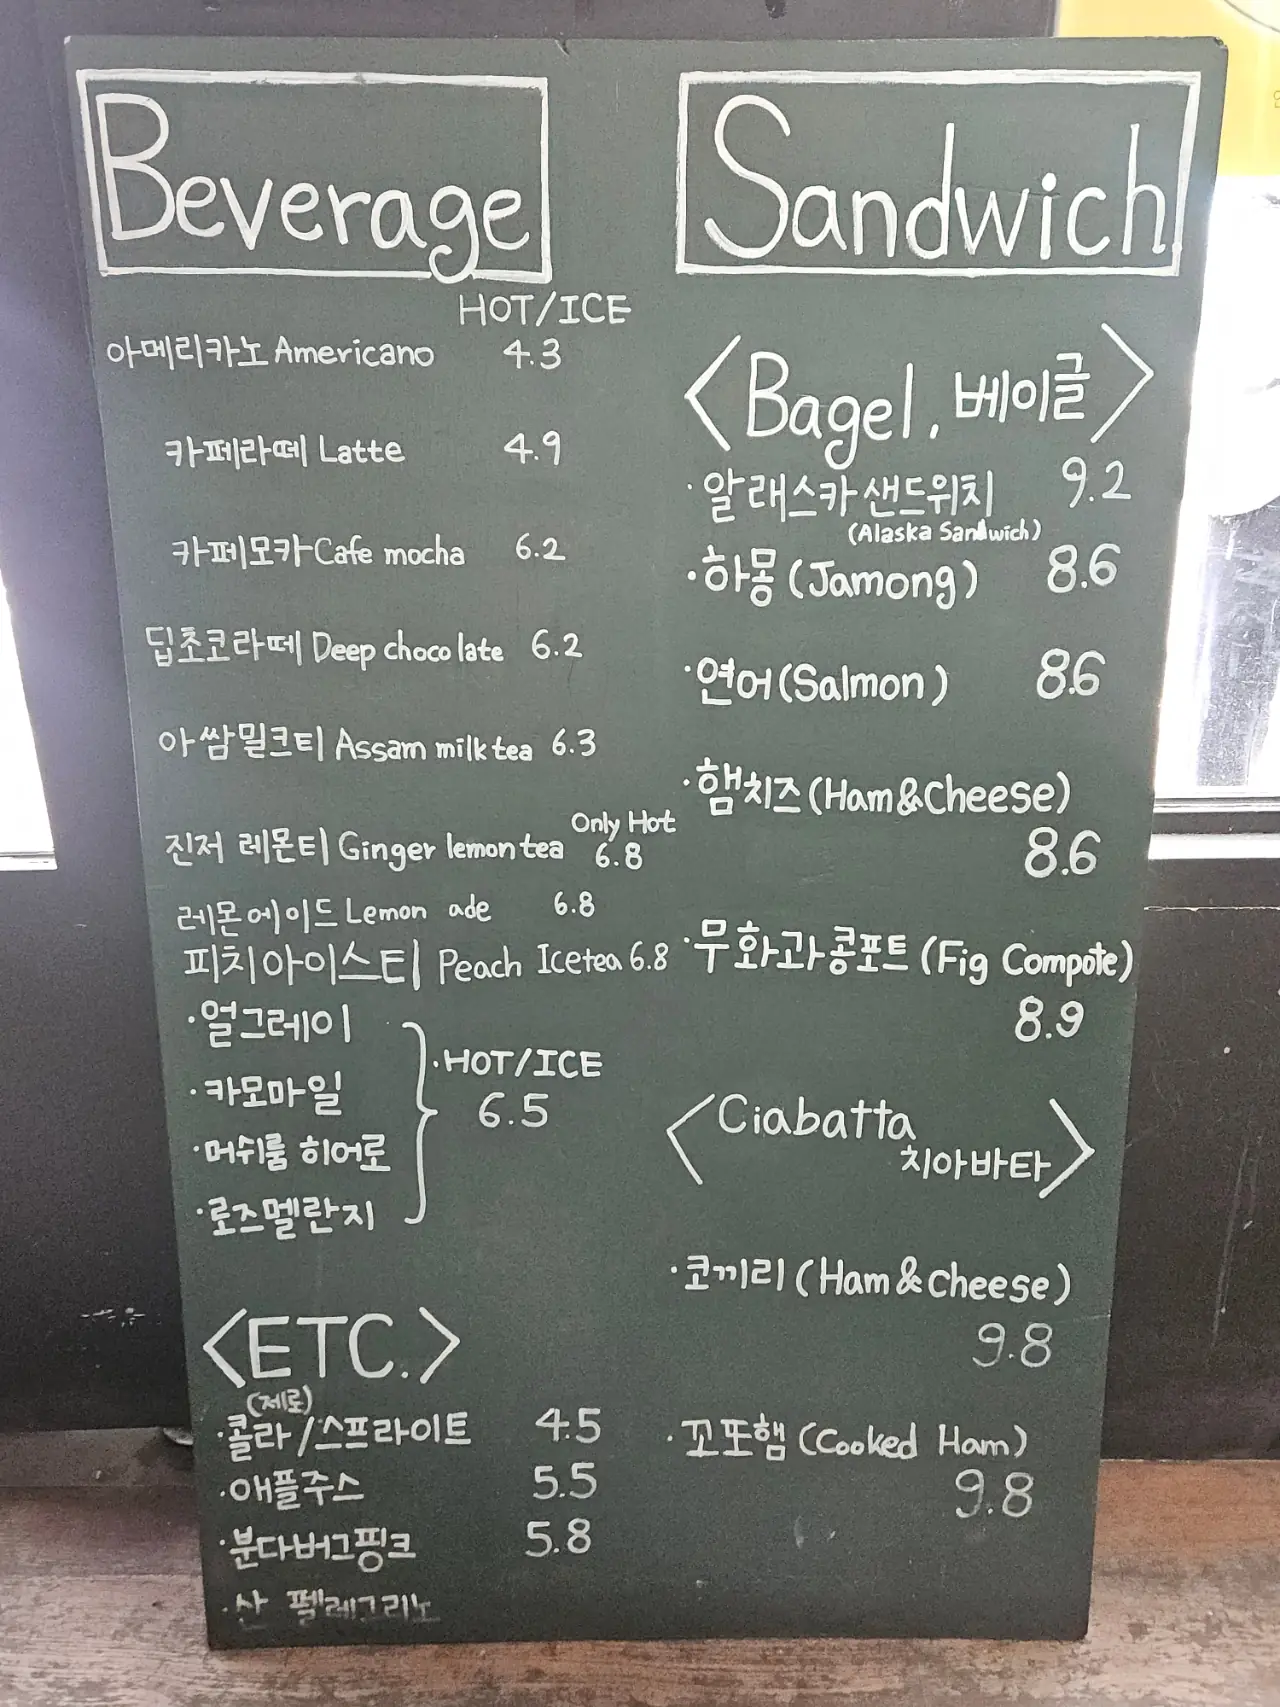 Beverage
HOT/ICE
아메리카노 Americano 4.3
카페라떼 Latte 4.9
카페모카 Cafe mocha 6.2
딥초코라떼 Deep chocolate 6.2
아쌈밀크티 Assam milk tea 6.3
Only Hot
진저 레몬티 Ginger lemon tea 6.8
레몬에이드 Lemon ade 6.8
피치아이스티 Peach Icetea 6.8
·얼그레이
·카모마일
·머쉬룸 히어로
·로즈멜란지
·HOT/ICE
6.5
<ETC.>
(제로)
·콜라/스프라이트 4.5
·애플주스 5.5
·분다버그핑크 5.8
·산 펠레그리노
Sandwich
<Bagel, 베이글>
·알래스카샌드위치 9.2
(Alaska Sandwich)
·하몽 (Jamong) 8.6
·연어 (Salmon) 8.6
·햄치즈 (Ham&Cheese)
8.6
·무화과콩포트 (Fig Compote)
8.9
<Ciabatta
치아바타>
·코끼리 (Ham&Cheese)
9.8
·꼬또햄 (Cooked Ham)
9.8